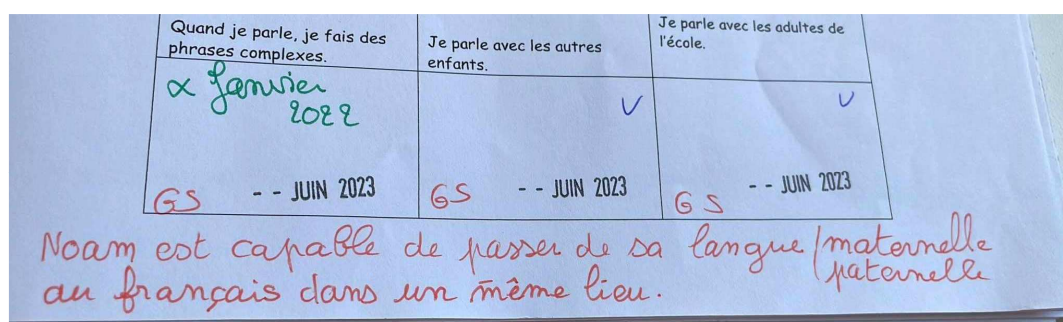 Quand je parle, je fais des
phrases complexes.
Je parle avec les autres
enfants.
Je parle avec les adultes de
l'école.
α Janvier
2022
GS -- JUIN 2023
V
GS -- JUIN 2023
V
GS -- JUIN 2023
Noam est capable de passer de sa langue / maternelle
paternelle
au français dans un même lieu.